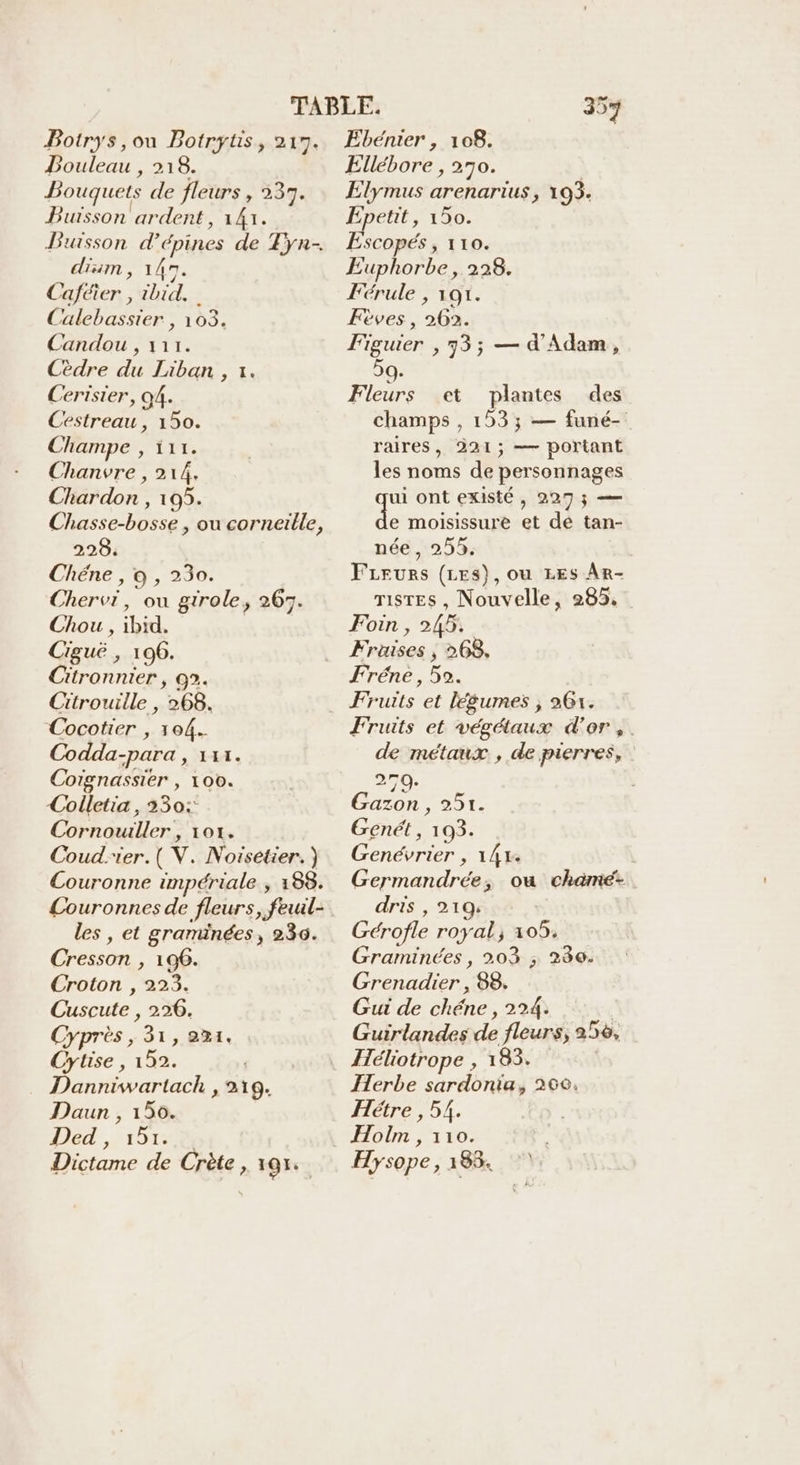 TABLE. 357
Botrys, ou Botrytis, 217.
Bouleau, 218.
Bouquets de fleurs, 237.
Buisson ardent, 141.
Buisson d'épines de Tyn-
dium, 147.
Caféier, ibid.
Calebassier, 103.
Candou, 111.
Cèdre du Liban, 1.
Cerisier, 94.
Cestreau, 150.
Champe, 111.
Chanvre, 214.
Chardon, 195.
Chasse-bosse, ou corneille,
228.
Chéne, 9, 230.
Chervi, ou girole, 267.
Chou, ibid.
Ciguë, 196.
Citronnier, 92.
Citrouille, 268.
Cocotier, 104.
Codda-para, 111.
Coignassier, 100.
Colletia, 230.
Cornouiller, 101.
Coudrier. (V. Noisetier.)
Couronne impériale, 188.
Couronnes de fleurs, feuil-
les, et graminées, 230.
Cresson, 196.
Croton, 223.
Cuscute, 226.
Cyprès, 31, 221.
Cytise, 152.
Danniwartach, 219.
Daun, 150.
Ded, 151.
Dictame de Crète, 191.
Ebénier, 108.
Ellébore, 270.
Elymus arenarius, 193.
Epetit, 150.
Escopés, 110.
Euphorbe, 228.
Férule, 191.
Fèves, 262.
Figuier, 73; — d'Adam,
59.
Fleurs et plantes des
champs, 153; — funé-
raires, 221; — portant
les noms de personnages
qui ont existé, 227; —
de moisissure et de tan-
née, 255.
FLEURS (LES), OU LES AR-
TISTES, Nouvelle, 285.
Foin, 245.
Fraises, 268.
Fréne, 52.
Fruits et légumes, 261.
Fruits et végétaux d'or,
de métaux, de pierres,
279.
Gazon, 251.
Genét, 193.
Genévrier, 141.
Germandrée, ou chamé-
dris, 219.
Gérofle royal, 105.
Graminées, 203, 230.
Grenadier, 88.
Gui de chéne, 224.
Guirlandes de fleurs, 256.
Héliotrope, 183.
Herbe sardonia, 200.
Hétre, 54.
Holm, 110.
Hysope, 183.